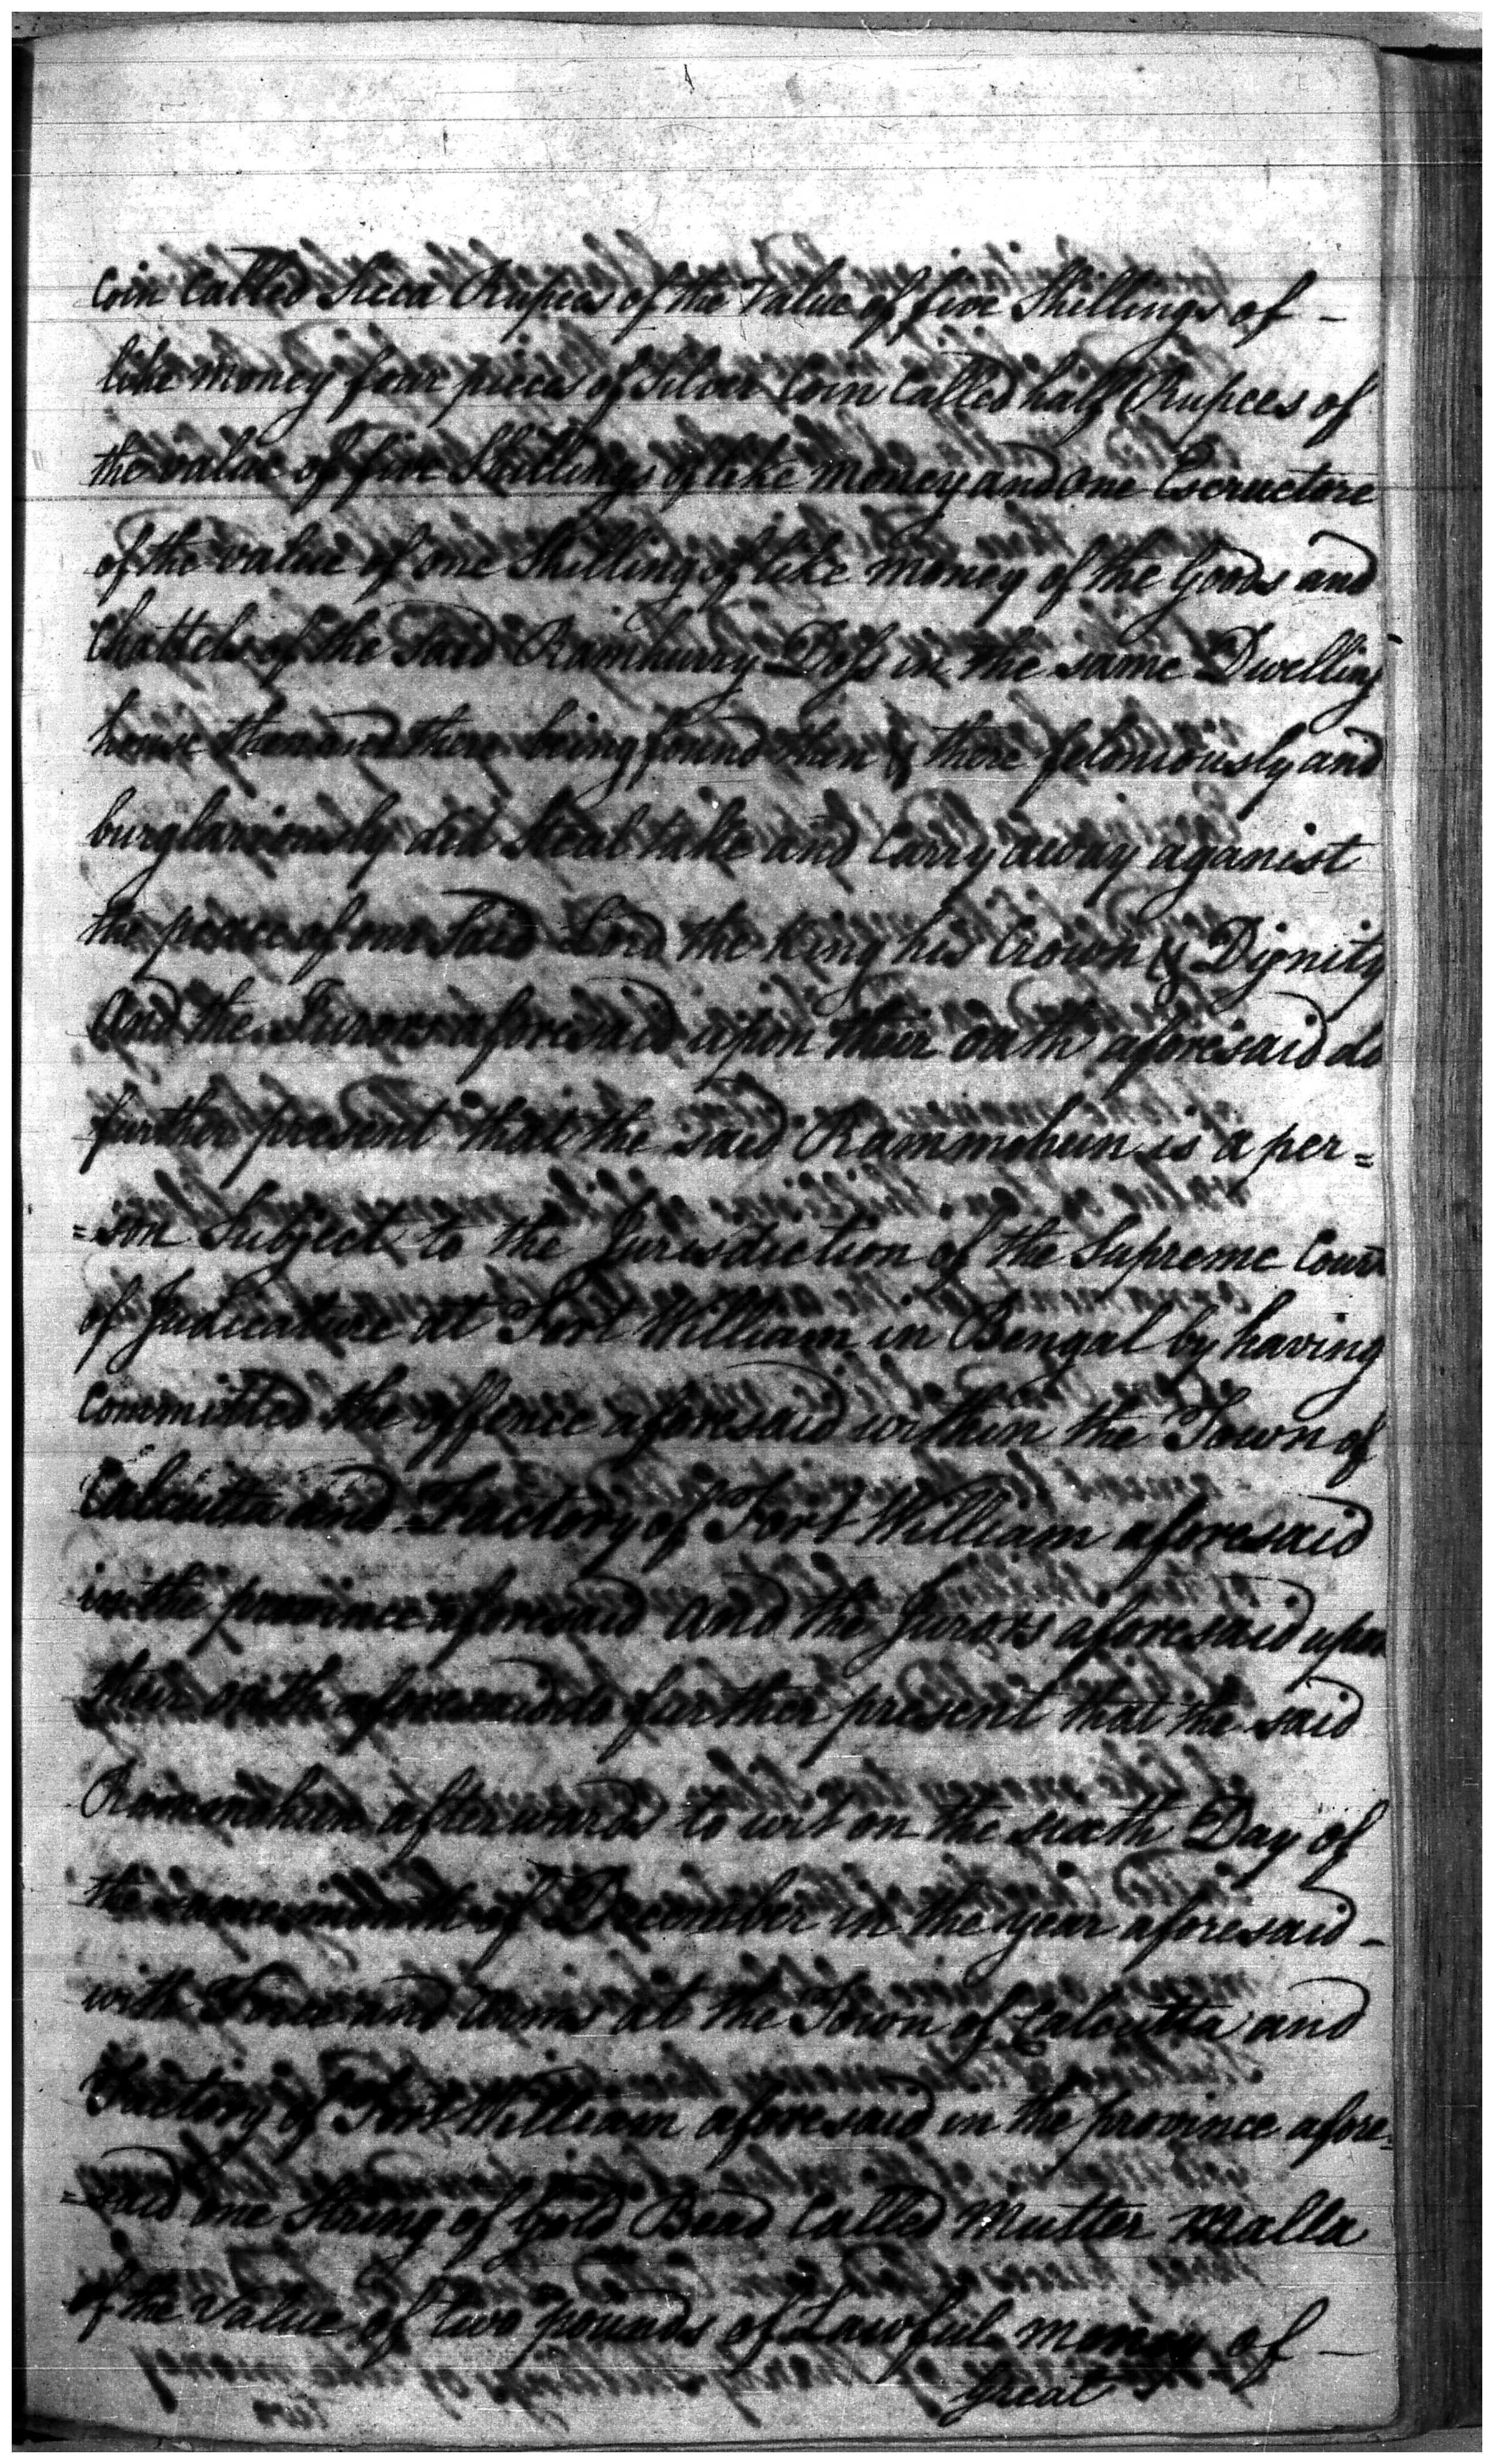 Coin Called Sicca Rupees of the Value of five Shillings of -
like money four pieces of Silver Coin Called half Rupees of
the value of five Shillings of like money and one Escructore
of the value of one Shilling of like money of the Goods and
Chattels of the said Ramhurry Doss in the same Dwelling
house then and there being found then & there feloniously and
burglariously did Steal take and Carry away aganist
the peace of our Said Lord the King his Crown & Dignity
And the Jurors aforesaid upon their oath aforesaid do
further present that the said Rammohun is a per=
=son Subject to the Jurisdiction of the Supreme Court
of Judicature at Fort William in Bengal by having
Committed the offence aforesaid within the Town of
Calcutta and Factory of Fort William aforesaid
in the province aforesaid and the Jurors aforesaid upon
their oath aforesaid do further present that the said
Rammohun afterwards to wit on the sixth Day of
the same month of December in the year aforesaid -
with Force and Arms at the Town of Calcutta and
Factory of Fort William aforesaid in the province afore=
=said one String of Gold Bead Called Mutter Malla
of the Value of two pounds of Lawful money of -
Great